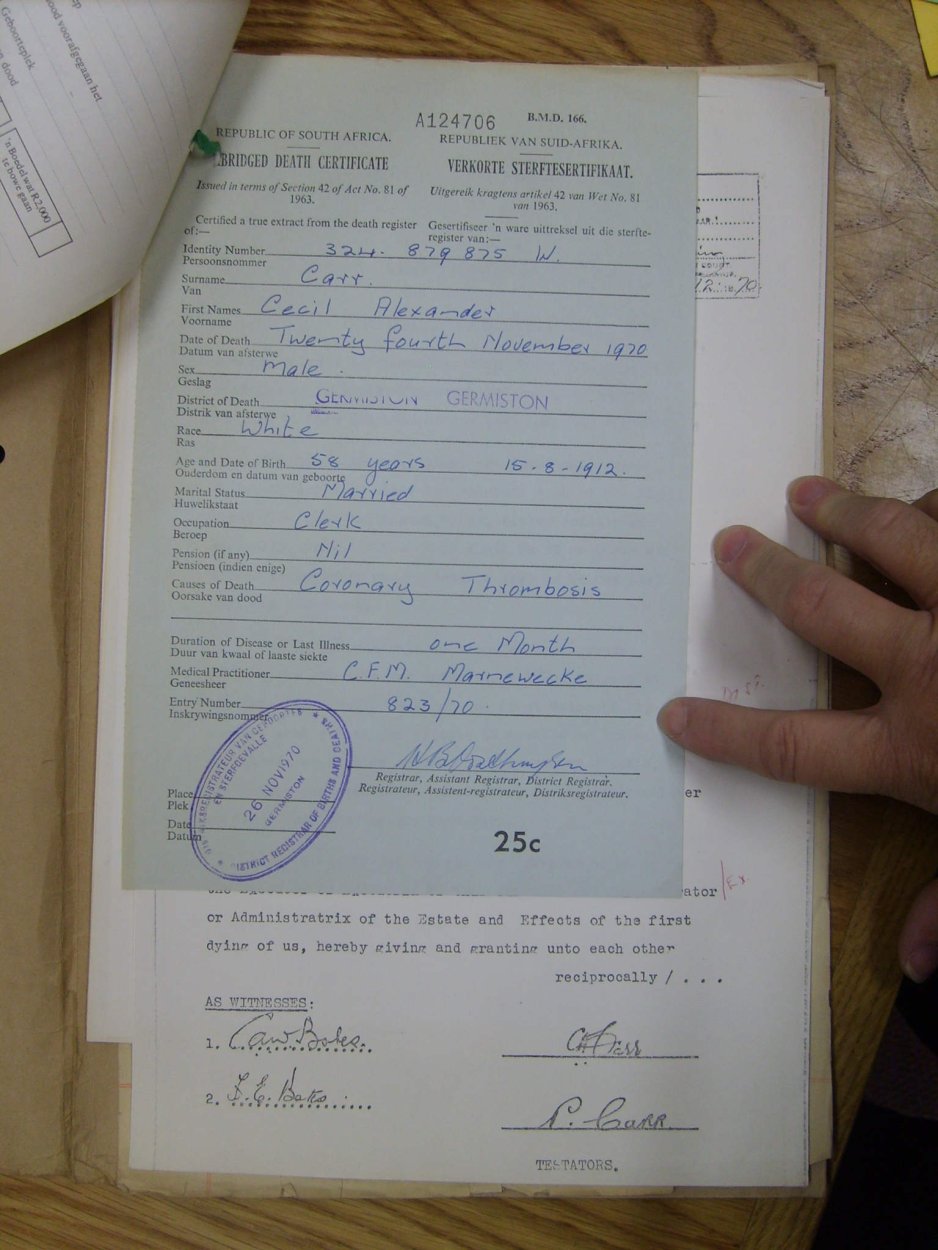 ood voorafgegaan het
Geboorteplek
n dood
'n Boedel wat R2,000
te bowe gaan
A124706 B.M.D. 166.
REPUBLIC OF SOUTH AFRICA. REPUBLIEK VAN SUID-AFRIKA.
BRIDGED DEATH CERTIFICATE VERKORTE STERFTESERTIFIKAAT.
Issued in terms of Section 42 of Act No. 81 of 1963. Uitgereik kragtens artikel 42 van Wet No. 81 van 1963.
Certified a true extract from the death register of:— Gesertifiseer 'n ware uittreksel uit die sterfte-register van:—
Identity Number 324. 879 875 W.
Persoonsnommer
Surname Carr.
Van
First Names Cecil Alexander
Voorname
Date of Death Twenty fourth November 1970
Datum van afsterwe
Sex Male.
Geslag
District of Death GERMISTON GERMISTON
Distrik van afsterwe
Race White
Ras
Age and Date of Birth 58 years 15-8-1912.
Ouderdom en datum van geboorte
Marital Status Married
Huwelikstaat
Occupation Clerk
Beroep
Pension (if any) Nil
Pensioen (indien enige)
Causes of Death Coronary Thrombosis
Oorsake van dood
Duration of Disease or Last Illness one Month
Duur van kwaal of laaste siekte
Medical Practitioner C.F.M. Marnewecke
Geneesheer
Entry Number 823/70.
Inskrywingsnommer
Registrar, Assistant Registrar, District Registrar.
Registrateur, Assistent-registrateur, Distriksregistrateur.
Place
Plek
Date
Datum
REGISTRATEUR VAN GEBOORTES
EN STERFGEVALLE
26 NOV 1970
GERMISTON
DISTRICT REGISTRAR OF BIRTHS AND DEATHS
25c
er
ator
or Administratrix of the Estate and Effects of the first
dying of us, hereby giving and granting unto each other
reciprocally / . . .
AS WITNESSES:
1.
2.
P. Carr
TESTATORS.